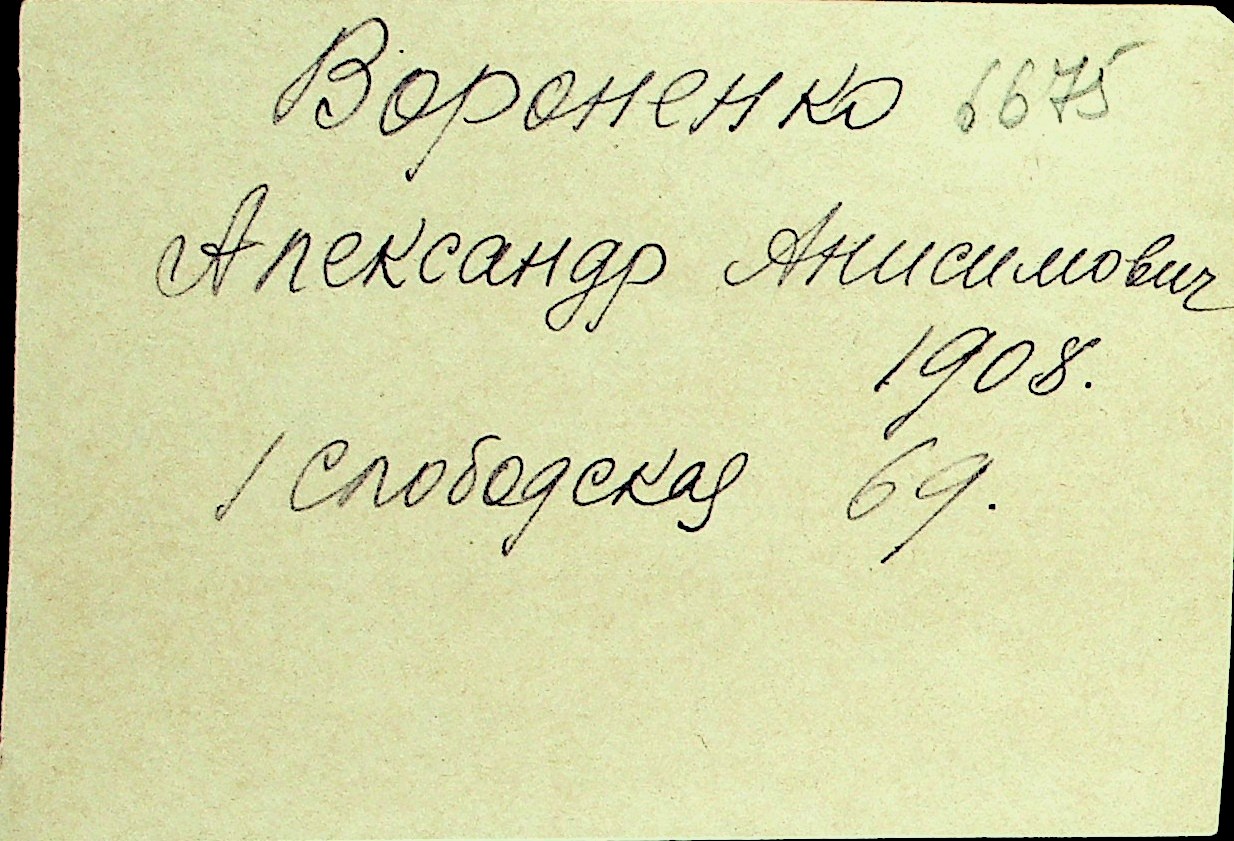 Вороненко 6675
Александр Анисимович
1908.
1 Слободская 69.